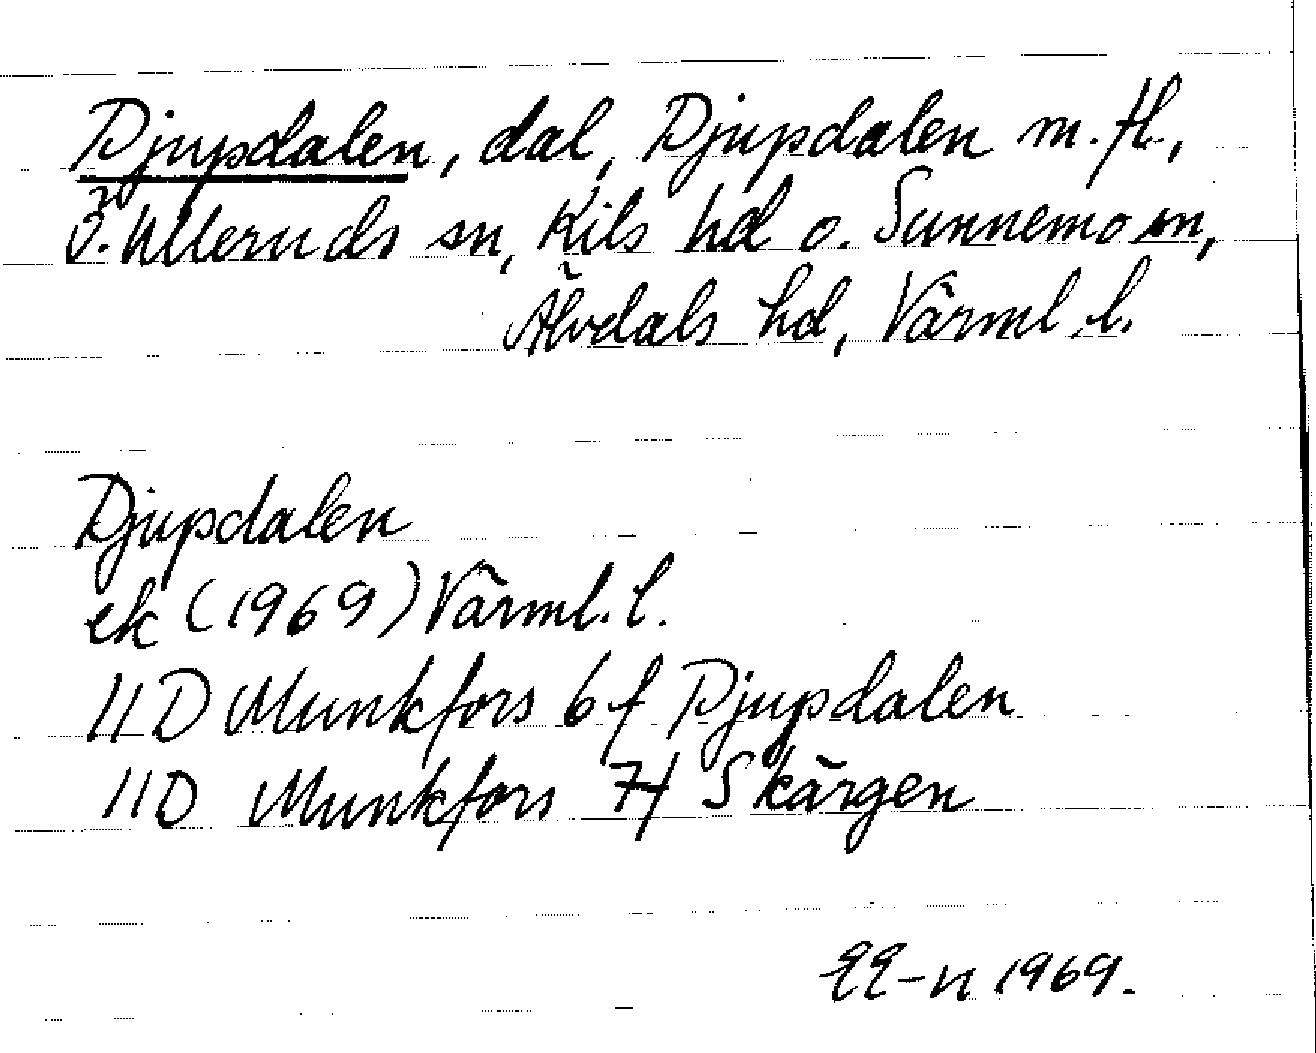 Djupdalen, dal, Djupdalen m.fl.,
Ö. Ulleruds sn, Kils hd o. Sunnemo sn,
Älvdals hd, Värml. l.
Djupdalen
ek (1969) Värml. l.
11D Munkfors 6f Djupdalen
11D Munkfors 7f Skärgen
EE-n 1969.